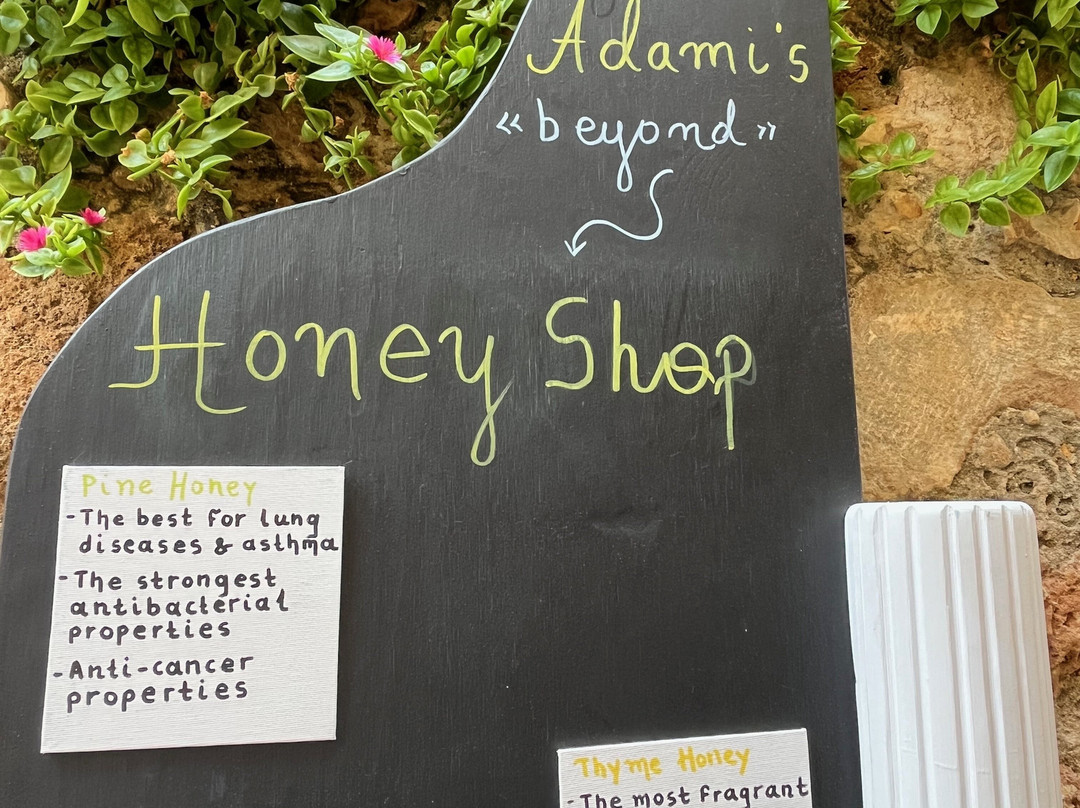 Adami's
«beyond»
Honey Shop
Pine Honey
-The best for lung
diseases & asthma
-The strongest
antibacterial
properties
-Anti-cancer
properties
Thyme Honey
-The most fragrant